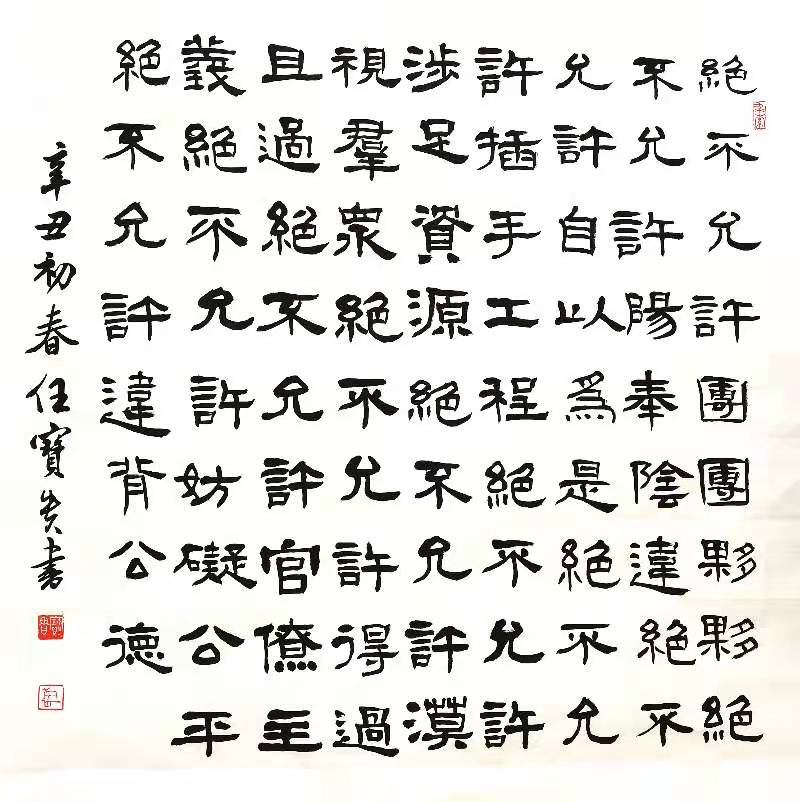 絕不允許團團夥夥絕
不允許陽奉陰違絕不
允許自以為是絕不允
許插手工程絕不允許
涉足資源絕不允許漠
視羣眾絕不允許得過
且過絕不允許官僚主
義絕不允許妨礙公平
絕不允許違背公德
辛丑初春任寶貴書